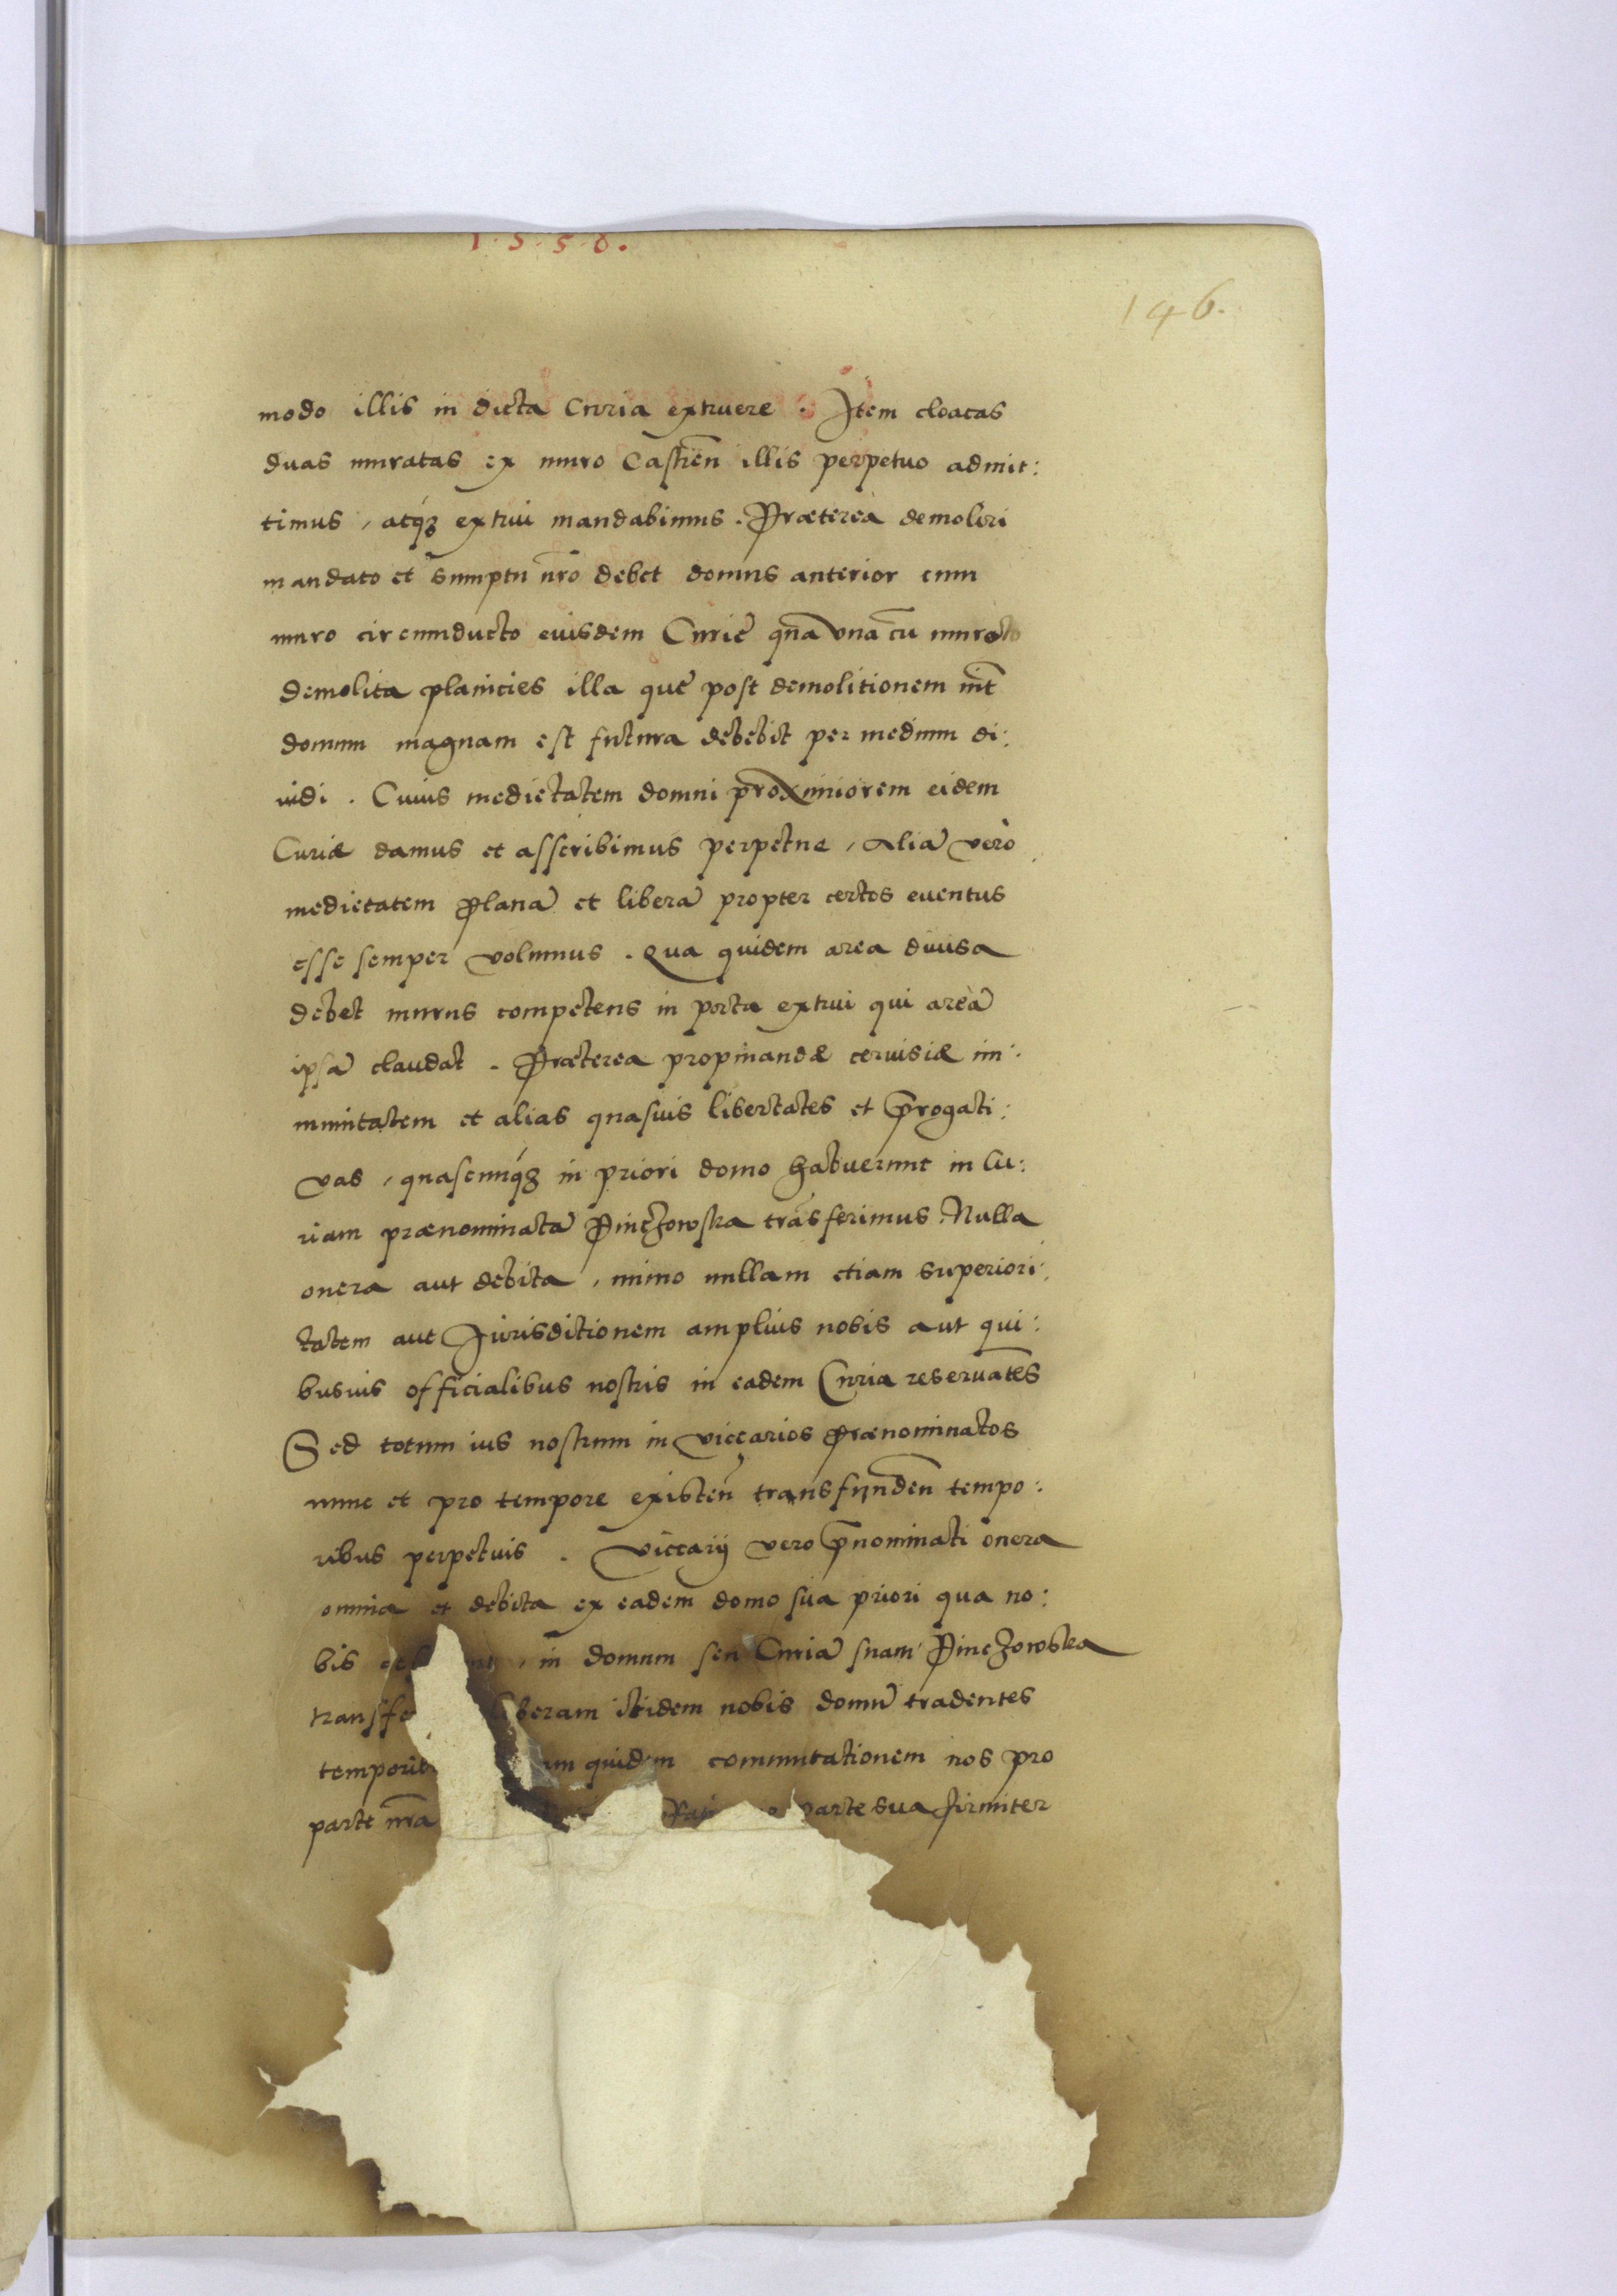 1.5.5.8.
146.
modo illis in dicta Curia extruere. Item cloacas
duas muratas ex muro Castreñ illis perpetuo admit:
timus, atq́ꝫ extrui mandabimus. Præterea demoliri
mandato et sumptu nr̃o debet domus anterior cum
muro circumducto eiusdem Curię qua vna cũ muro
demolita planicies illa quę post demolitionem int̃
domum magnam est futura debebit per medium di:
uidi. Cuius medietatem domui proximiorem eidem
Curiæ damus et asscribimus perpetue, Aliã verò
medietatem planã et liberã propter certos euentus
esse semper volumus. Qua quidem area diuisa
debet murus competens in porta extrui qui areã
ipsã claudat. Præterea propinandæ ceruisiæ im:
munitatem et alias quasuis libertates et p̃rogati:
vas, quascunq́ꝫ in priori domo habuerunt in Cu:
riam prænominatã Pinczowska trãsferimus. Nulla
onera aut debita, immo nullam etiam superiori:
tatem aut Jurisditionem amplius nobis aut qui:
busuis officialibus nostris in eadem Curia reseruãtes
Sed totum ius nostrum in viccarios prænominatos
nunc et pro tempore existeñ transfundeñ tempo:
ribus perpetuis. Viccarij vero p̃nominati onera
omnia et debita ex eadem domo sua priori qua no:
bis in domum seu Curiã suam Pinczowska
transfe liberam itidem nobis domũ tradentes
temporib quidem commutationem nos pro
parte nr̃a parte sua firmiter